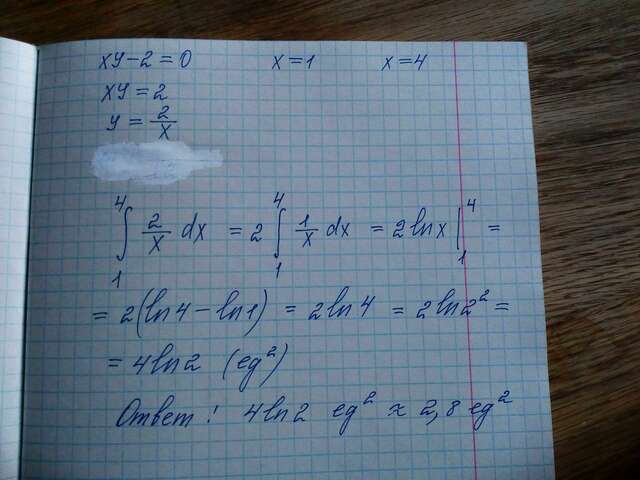 xy-2=0 x=1 x=4
xy=2
y=2/x
∫₁⁴ 2/x dx = 2 ∫₁⁴ 1/x dx = 2lnx|₁⁴ =
= 2(ln4-ln1) = 2ln4 = 2ln2² =
= 4ln2 (ед²)
Ответ: 4ln2 ед² ≈ 2,8 ед²